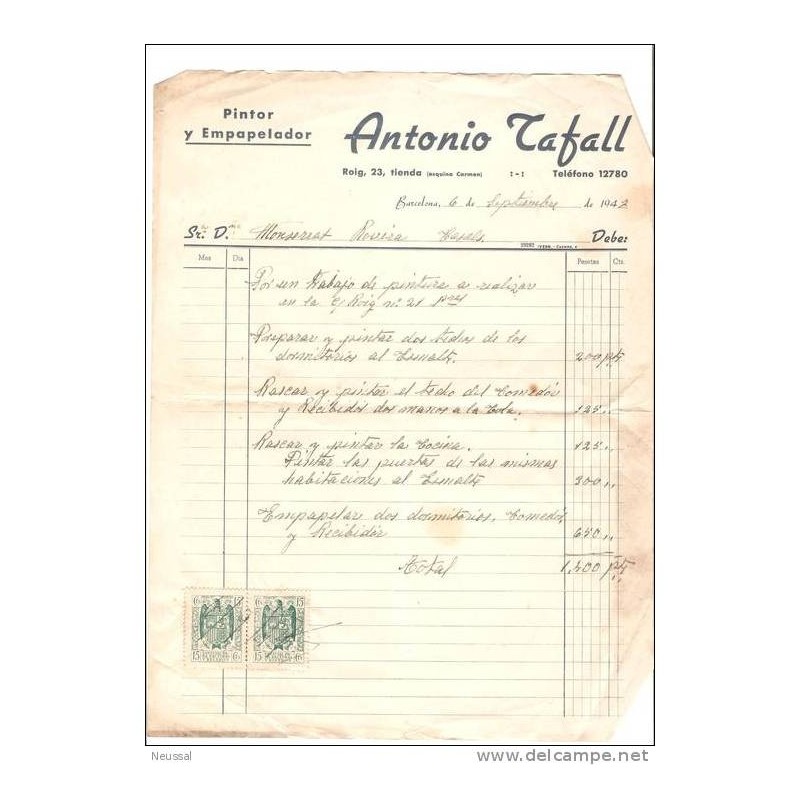 Pintor
y Empapelador
Antonio Tafall
Roig, 23, tienda (esquina Carmen) :-: Teléfono 12780
Barcelona, 6 de Septiembre de 1942
Sr. D. Monserrat Rovira Casals Debe:
Mes Día Pesetas Cts.
Por un trabajo de pintura a realizar
en la C/ Roig nº 21 pral
Preparar y pintar dos techos de los
dormitorios al Esmalte. 200 pts
Rascar y pintar el techo del Comedór
y Recibidor dos manos a la Cola. 125 "
Rascar y pintar la Cocina. 125 "
Pintar las puertas de las mismas
habitaciones al Esmalte 300 "
Empapelar dos dormitorios, Comedór
y Recibidór 650 "
Total 1,400 pts
15 Cts 15 Cts
Neussal
delcampe.net